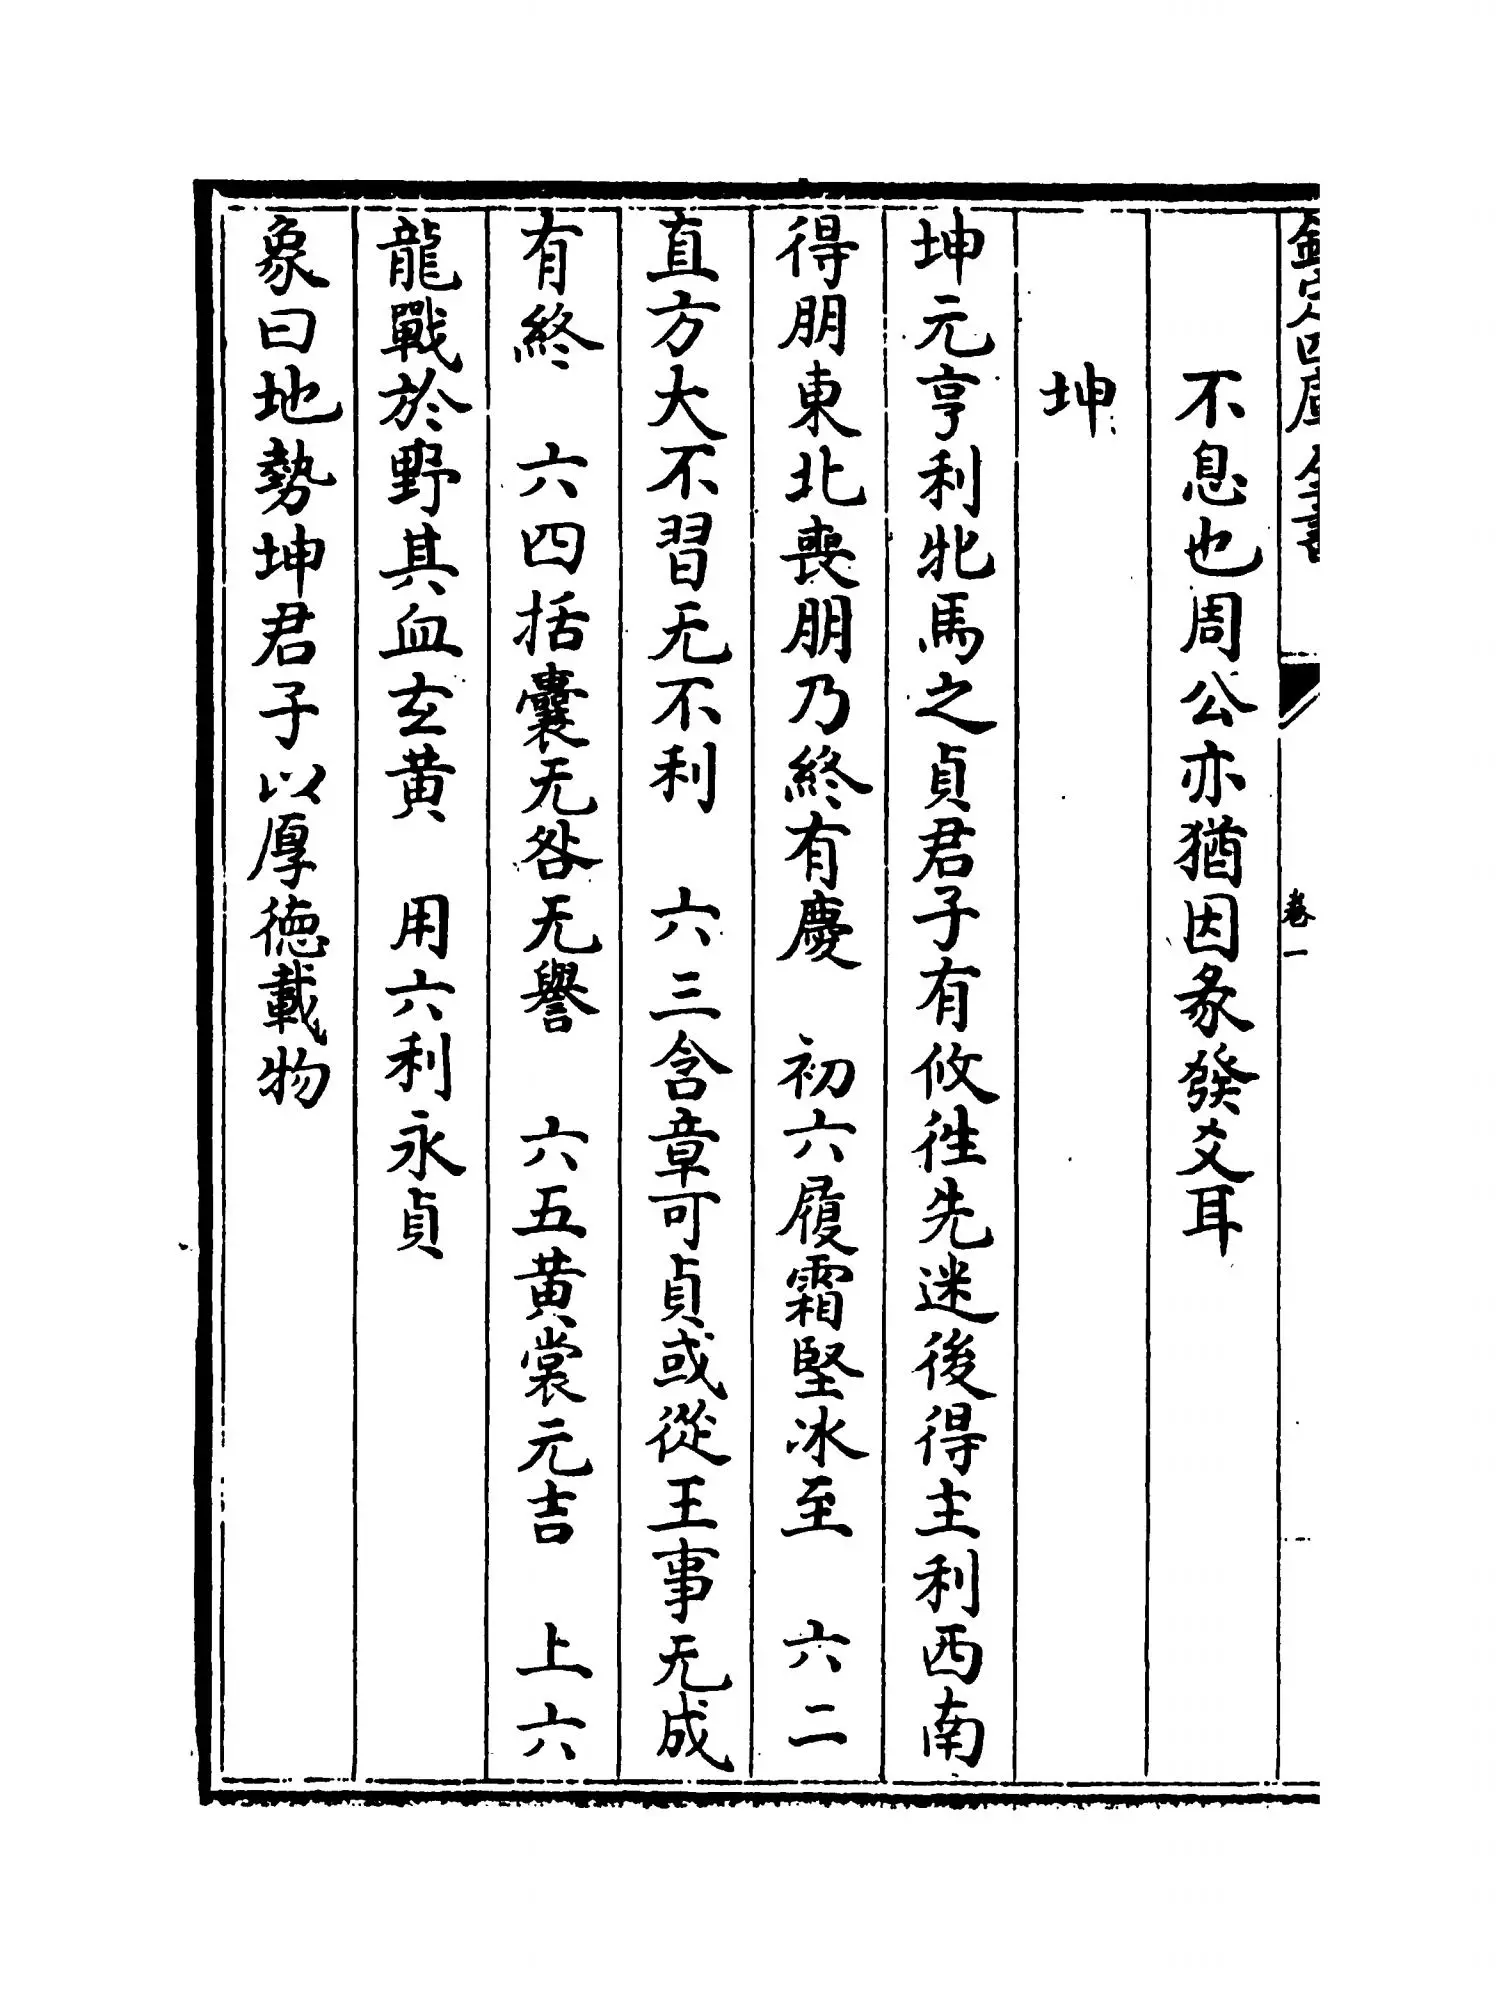 欽定四庫全書
卷一
不息也周公亦猶因彖發爻耳
坤
坤元亨利牝馬之貞君子有攸徃先迷後得主利西南
得朋東北喪朋乃終有慶　初六履霜堅冰至　六二
直方大不習无不利　六三含章可貞或從王事无成
有終　六四括囊无咎无譽　六五黄裳元吉　上六
龍戰於野其血玄黄　用六利永貞
象曰地勢坤君子以厚徳載物